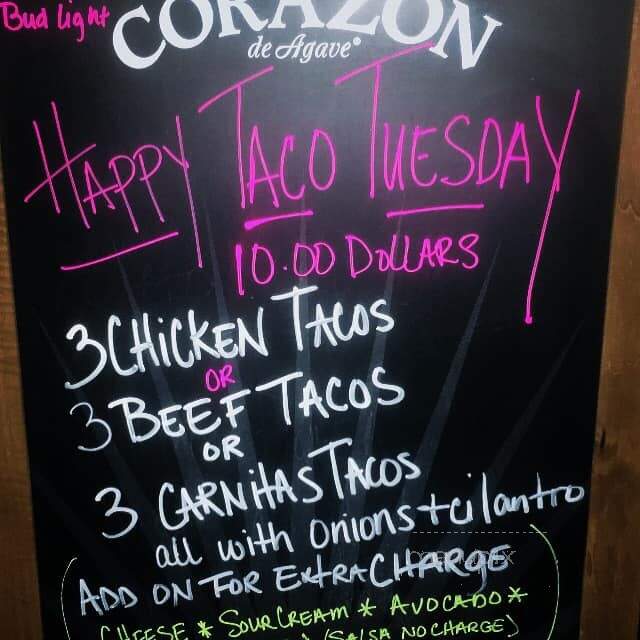 Bud light
CORAZÓN
de Agave®
HAPPY TACO TUESDAY
10.00 DOLLARS
3 CHICKEN TACOS
OR
3 BEEF TACOS
OR
3 CARNITAS TACOS
all with onions + cilantro
ADD ON FOR EXTRA CHARGE
CHEESE * SOUR CREAM * AVOCADO *
(SALSA NO CHARGE)